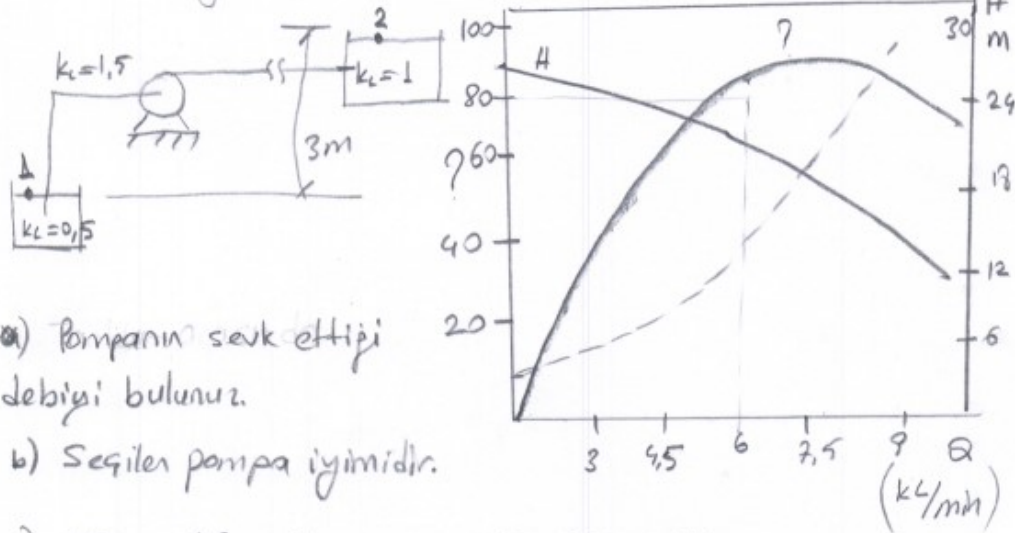 2
1
kL=1,5
kL=1
3m
kL=0,5
a) Pompanın sevk ettiği
debiyi bulunuz.
b) Seçilen pompa iyimidir.
100
80
?
60
40
20
H
?
30
H
m
24
18
12
6
3
4,5
6
7,5
9
Q
(kL/min)